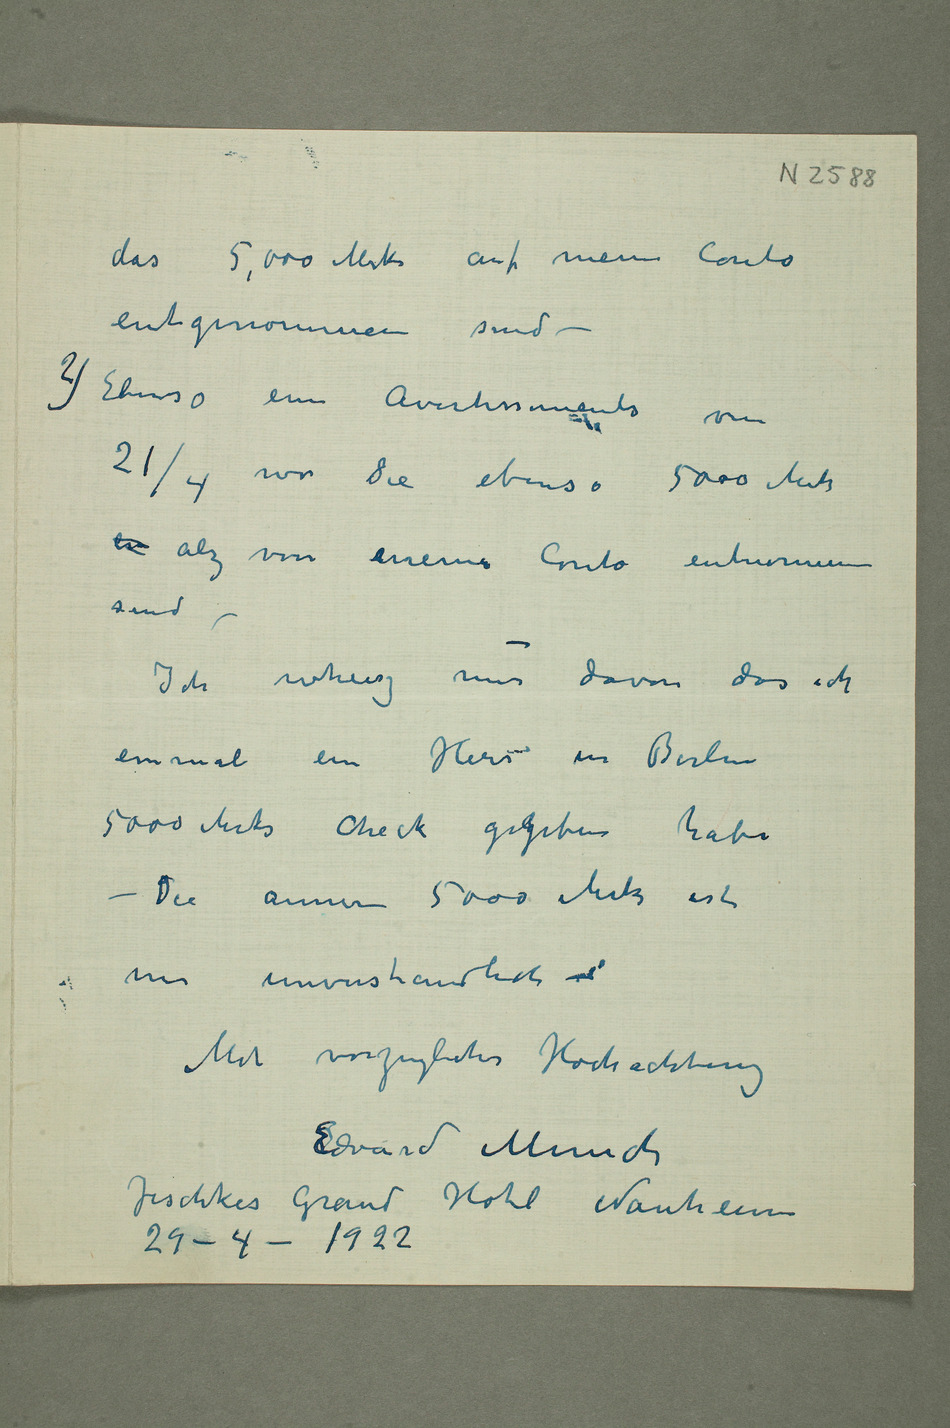 N 2588
das 5,000 Mk auf meine Conto
entgenommen sind –
2) Ebenso ein Avertissements von
21/4 wo die ebenso 5000 Mk
alz von meine Conto entnommen
sind –
Ich weisz nur davon das ich
einmal ein Herr in Berlin
5000 Mks Check gegeben habe
– Die annere 5000 Mk ist
mir unverständlich
Mit vorzuglicher Hochachtung
Edvard Munch
Jeschkes Grand Hotel Nauheim
29 – 4 – 1922